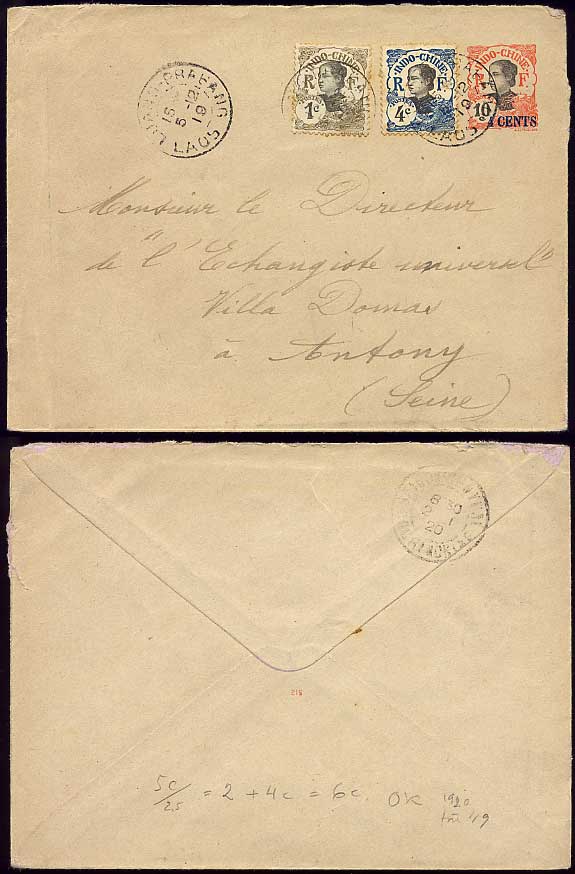 LUANG-PRABANG
15
5 -12
19
LAOS
INDO-CHINE
R F
1c
INDO-CHINE
R F
4c
LAOS
INDO-CHINE
R F
10
4 CENTS
Monsieur le Directeur
de "l'Echangiste universel"
Villa Domas
à Antony
(Seine)
8 30
20
512
5c/25 = 2 + 4c = 6c. OK 1920